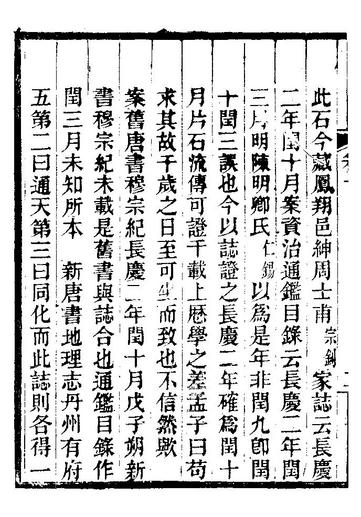 此石今藏鳳翔邑紳周士甫宗釗家誌云長慶
二年閏十月案資治通鑑目錄云長慶二年閏
三月明陳明卿氏仁錫以為是年非閏九卽閏
十閏三誤也今以誌證之長慶二年確為閏十
月片石流傳可證千載上厯學之差孟子曰苟
求其故千歲之日至可坐而致也不信然歟
案舊唐書穆宗紀長慶二年閏十月戊子朔新
書穆宗紀未載是舊書與誌合也通鑑目錄作
閏三月未知所本　新唐書地理志丹州有府
五第二曰通天第三曰同化而此誌則各得一